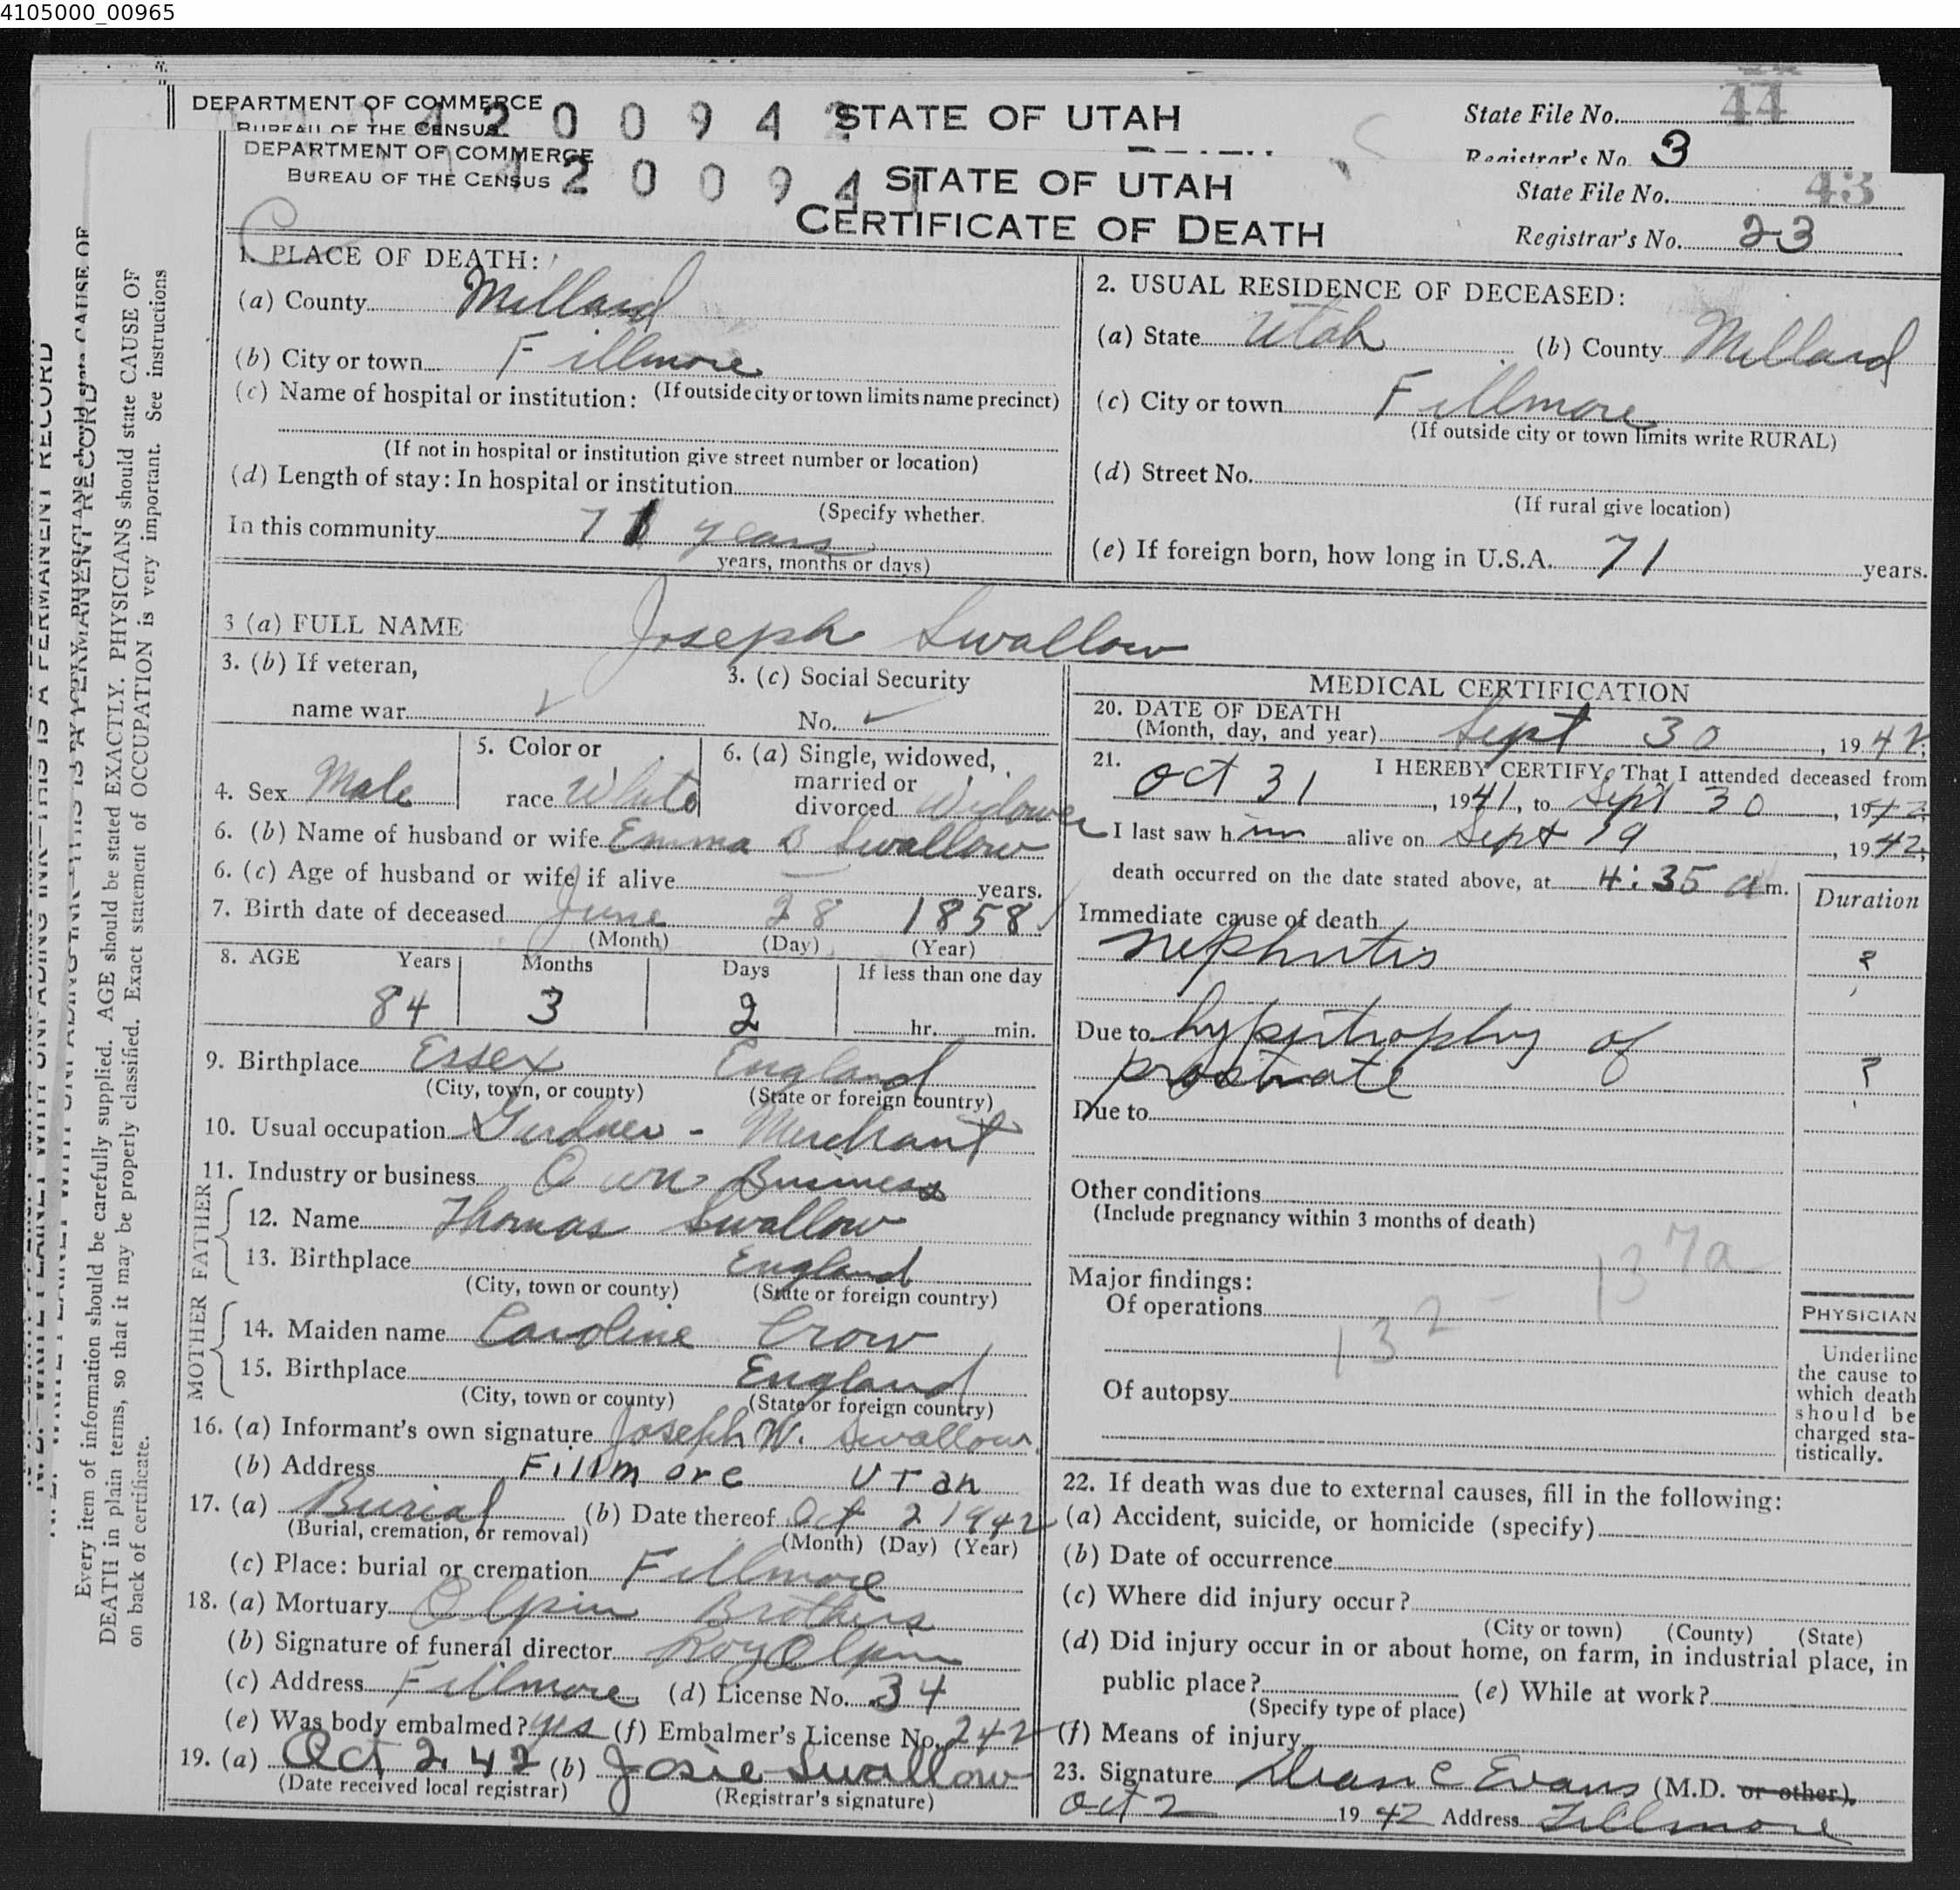 4105000_00965
DEPARTMENT OF COMMERCE
BUREAU OF THE CENSUS
4 2 0 0 9 4 2
STATE OF UTAH
State File No. 44
Registrar's No. 3
DEPARTMENT OF COMMERCE
BUREAU OF THE CENSUS
4 2 0 0 9 4 1
STATE OF UTAH
CERTIFICATE OF DEATH
State File No. 43
Registrar's No. 23
1. PLACE OF DEATH:
(a) County Millard
(b) City or town Fillmore
(c) Name of hospital or institution: (If outside city or town limits name precinct)
(If not in hospital or institution give street number or location)
(d) Length of stay: In hospital or institution
(Specify whether
In this community 71 years
years, months or days)
2. USUAL RESIDENCE OF DECEASED:
(a) State Utah (b) County Millard
(c) City or town Fillmore
(If outside city or town limits write RURAL)
(d) Street No.
(If rural give location)
(e) If foreign born, how long in U.S.A. 71 years.
3 (a) FULL NAME Joseph Swallow
3. (b) If veteran,
name war ✓
3. (c) Social Security
No. ✓
4. Sex Male
5. Color or
race White
6. (a) Single, widowed,
married or
divorced Widower
6. (b) Name of husband or wife Emma B Swallow
6. (c) Age of husband or wife if alive — years.
7. Birth date of deceased June 28 1858
(Month) (Day) (Year)
8. AGE Years Months Days If less than one day
84 3 2 hr. min.
9. Birthplace Essex England
(City, town, or county) (State or foreign country)
10. Usual occupation Gardner - Merchant
11. Industry or business Own Business
FATHER
12. Name Thomas Swallow
13. Birthplace England
(City, town or county) (State or foreign country)
MOTHER
14. Maiden name Caroline Crow
15. Birthplace England
(City, town or county) (State or foreign country)
16. (a) Informant's own signature Joseph W. Swallow
(b) Address Fillmore Utah
17. (a) Burial (b) Date thereof Oct 2 1942
(Burial, cremation, or removal) (Month) (Day) (Year)
(c) Place: burial or cremation Fillmore
18. (a) Mortuary Olpin Brothers
(b) Signature of funeral director Roy Olpin
(c) Address Fillmore (d) License No. 34
(e) Was body embalmed? yes (f) Embalmer's License No. 242
19. (a) Oct 2. 42 (b) Josie Swallow
(Date received local registrar) (Registrar's signature)
MEDICAL CERTIFICATION
20. DATE OF DEATH
(Month, day, and year) Sept 30, 1942;
21. I HEREBY CERTIFY, That I attended deceased from
Oct 31, 1941, to Sept 30, 1942;
I last saw him alive on Sept 19, 1942;
death occurred on the date stated above, at 4:35 a m.
Duration
Immediate cause of death
nephritis ?
Due to hypertrophy of
prostrate ?
Due to
Other conditions
(Include pregnancy within 3 months of death)
137a
Major findings:
Of operations
132 -
Of autopsy
PHYSICIAN
Underline
the cause to
which death
should be
charged sta-
tistically.
22. If death was due to external causes, fill in the following:
(a) Accident, suicide, or homicide (specify)
(b) Date of occurrence
(c) Where did injury occur?
(City or town) (County) (State)
(d) Did injury occur in or about home, on farm, in industrial place, in
public place? (e) While at work?
(Specify type of place)
(f) Means of injury
23. Signature Dean C Evans (M.D. or other).
Oct 2 1942 Address Fillmore
Every item of information should be carefully supplied. AGE should be stated EXACTLY. PHYSICIANS should state CAUSE OF
DEATH in plain terms, so that it may be properly classified. Exact statement of OCCUPATION is very important. See instructions
on back of certificate.